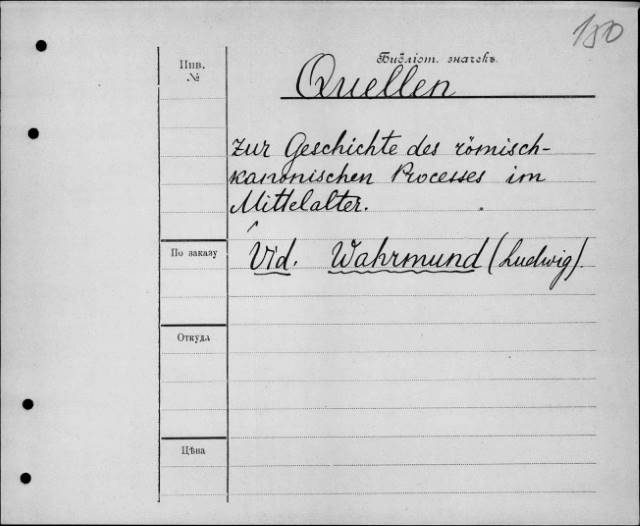 150
Инв.
№
Библіот. значекъ.
Quellen
zur Geschichte des römisch-
kanonischen Processes im
Mittelalter.
По заказу
Vid. Wahrmund (Ludwig).
Откуда
Цѣна